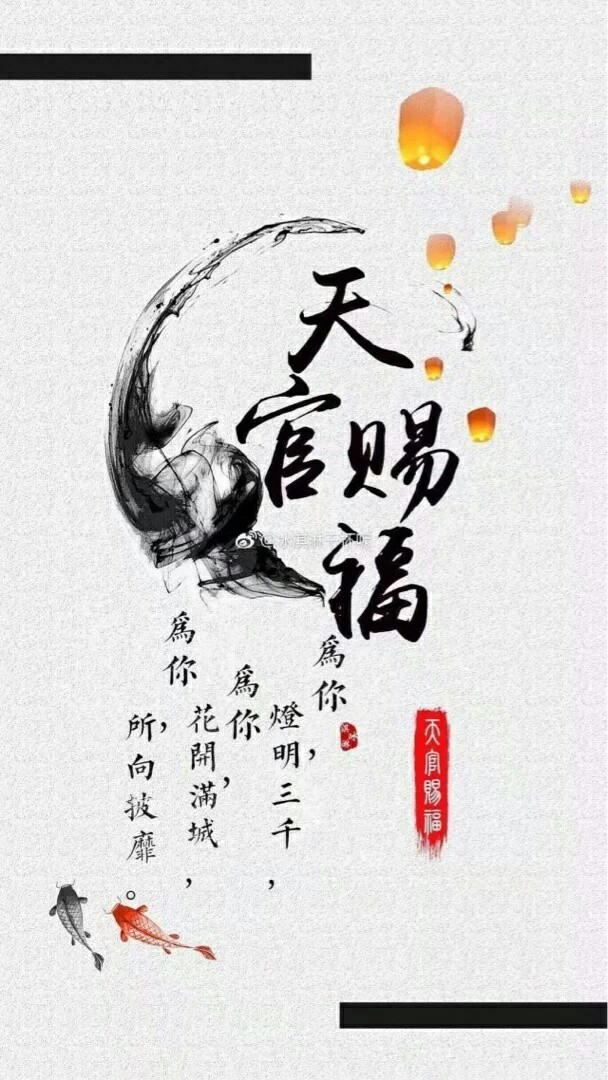 天
官賜
福
爲你，
燈明三千，
爲你，
花開滿城，
爲你，
所向披靡。
天官賜福